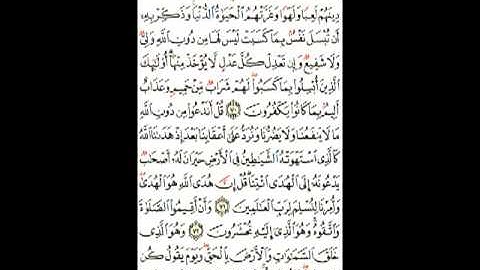 دِينَهُمْ لَعِبًا وَلَهْوًا وَغَرَّتْهُمُ الْحَيَاةُ الدُّنْيَا وَذَكِّرْ بِهِ
أَن تُبْسَلَ نَفْسٌ بِمَا كَسَبَتْ لَيْسَ لَهَا مِن دُونِ اللَّهِ وَلِيٌّ
وَلَا شَفِيعٌ وَإِن تَعْدِلْ كُلَّ عَدْلٍ لَّا يُؤْخَذْ مِنْهَا أُولَٰئِكَ
الَّذِينَ أُبْسِلُوا بِمَا كَسَبُوا لَهُمْ شَرَابٌ مِّنْ حَمِيمٍ وَعَذَابٌ
أَلِيمٌ بِمَا كَانُوا يَكْفُرُونَ ۝٧٠ قُلْ أَنَدْعُوا مِن دُونِ اللَّهِ
مَا لَا يَنفَعُنَا وَلَا يَضُرُّنَا وَنُرَدُّ عَلَىٰ أَعْقَابِنَا بَعْدَ إِذْ هَدَانَا اللَّهُ
كَالَّذِي اسْتَهْوَتْهُ الشَّيَاطِينُ فِي الْأَرْضِ حَيْرَانَ لَهُ أَصْحَابٌ
يَدْعُونَهُ إِلَى الْهُدَى ائْتِنَا قُلْ إِنَّ هُدَى اللَّهِ هُوَ الْهُدَىٰ
وَأُمِرْنَا لِنُسْلِمَ لِرَبِّ الْعَالَمِينَ ۝٧١ وَأَنْ أَقِيمُوا الصَّلَاةَ
وَاتَّقُوهُ وَهُوَ الَّذِي إِلَيْهِ تُحْشَرُونَ ۝٧٢ وَهُوَ الَّذِي
خَلَقَ السَّمَاوَاتِ وَالْأَرْضَ بِالْحَقِّ وَيَوْمَ يَقُولُ كُن